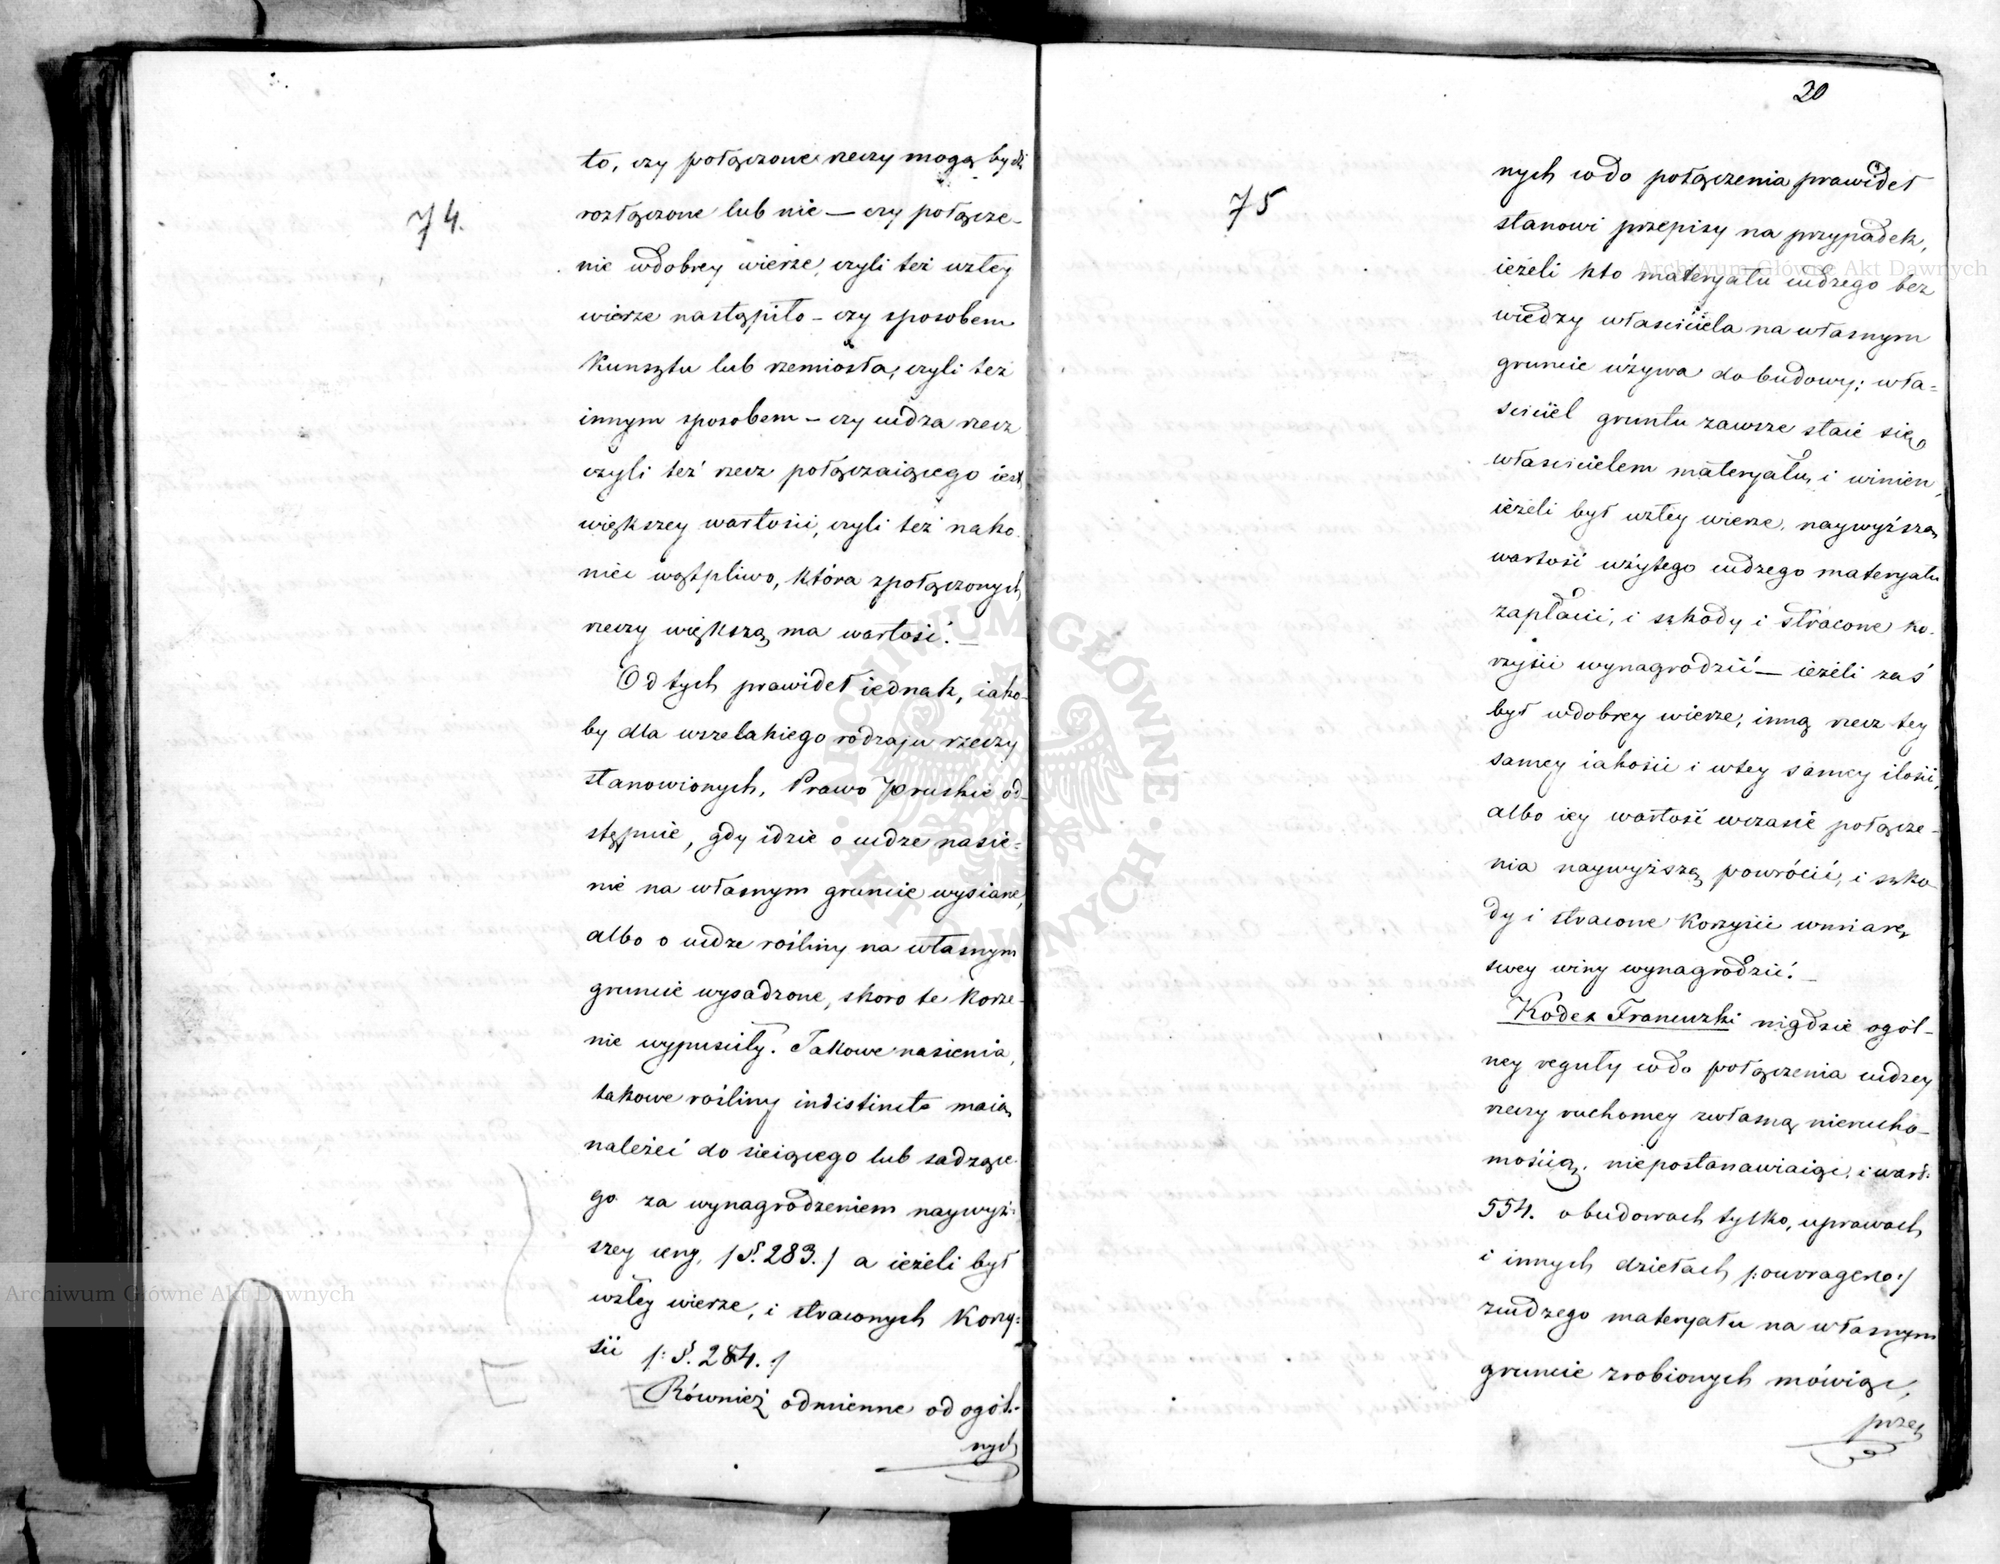 74.
to, czy połączone rzeczy mogą bydź
rozłączone lub nie — czy połącze-
nie wdobrey wierze, czyli też wzłey
wierze nastąpiło – czy sposobem
kunsztu lub rzemiosła, czyli też
innym sposobem – czy cudza rzecz
czyli też rzecz połączaiącego iest
większey wartości, czyli też nako-
niec wątpliwo, która zpołączonych
rzeczy większą ma wartość. —
Od tych prawideł iednak, iako-
by dla wszelakiego rodzaju rzeczy
stanowionych, Prawo Pruskie od-
stępuie, gdy idzie o cudze nasie-
nie na własnym gruncie wysiane,
albo o cudze rośliny na własnym
gruncie wysadzone, skoro te korze-
nie wypuściły. Takowe nasienia,
takowe rośliny indistincte maią
należeć do sieiącego lub sadzące-
go za wynagrodzeniem naywyż-
szey ceny, /§. 283./ a ieżeli był
wzłey wierze, i straconych korzy-
ści /: §. 284. :/
Również odmienne od ogól-
nych
20
75
nych codo połączenia prawideł
stanowi przepisy na przypadek,
ieżeli kto materyału cudzego bez
wiedzy właściciela na własnym
gruncie używa do budowy; wła-
ściciel gruntu zawsze staie się
właścicielem materyału, i winien,
ieżeli był wzłey wierze, naywyższą
wartość użytego cudzego materyału
zapłacić, i szkody i stracone ko-
rzyści wynagrodzić — ieżeli zaś
był wdobrey wierze, inną rzecz tey
samey iakości i wtey samey ilości,
albo iey wartość wczasie połącze-
nia naywyższą powrócić, i szko-
dy i stracone korzyści wmiarę
swey winy wynagrodzić. —
Kodex Francuzki nigdzie ogól-
ney reguły codo połączenia cudzey
rzeczy ruchomey zwłasną nierucho-
mością, niepostanawiaiąc, i wart.
554. o budowach tylko, uprawach
i innych dziełach /: ouvrages :/
zcudzego materyału na własnym
gruncie zrobionych mówiąc,
prze
Archiwum Główne Akt Dawnych
Archiwum Główne Akt Dawnych
ARCHIWUM GŁÓWNE · AKT DAWNYCH ·